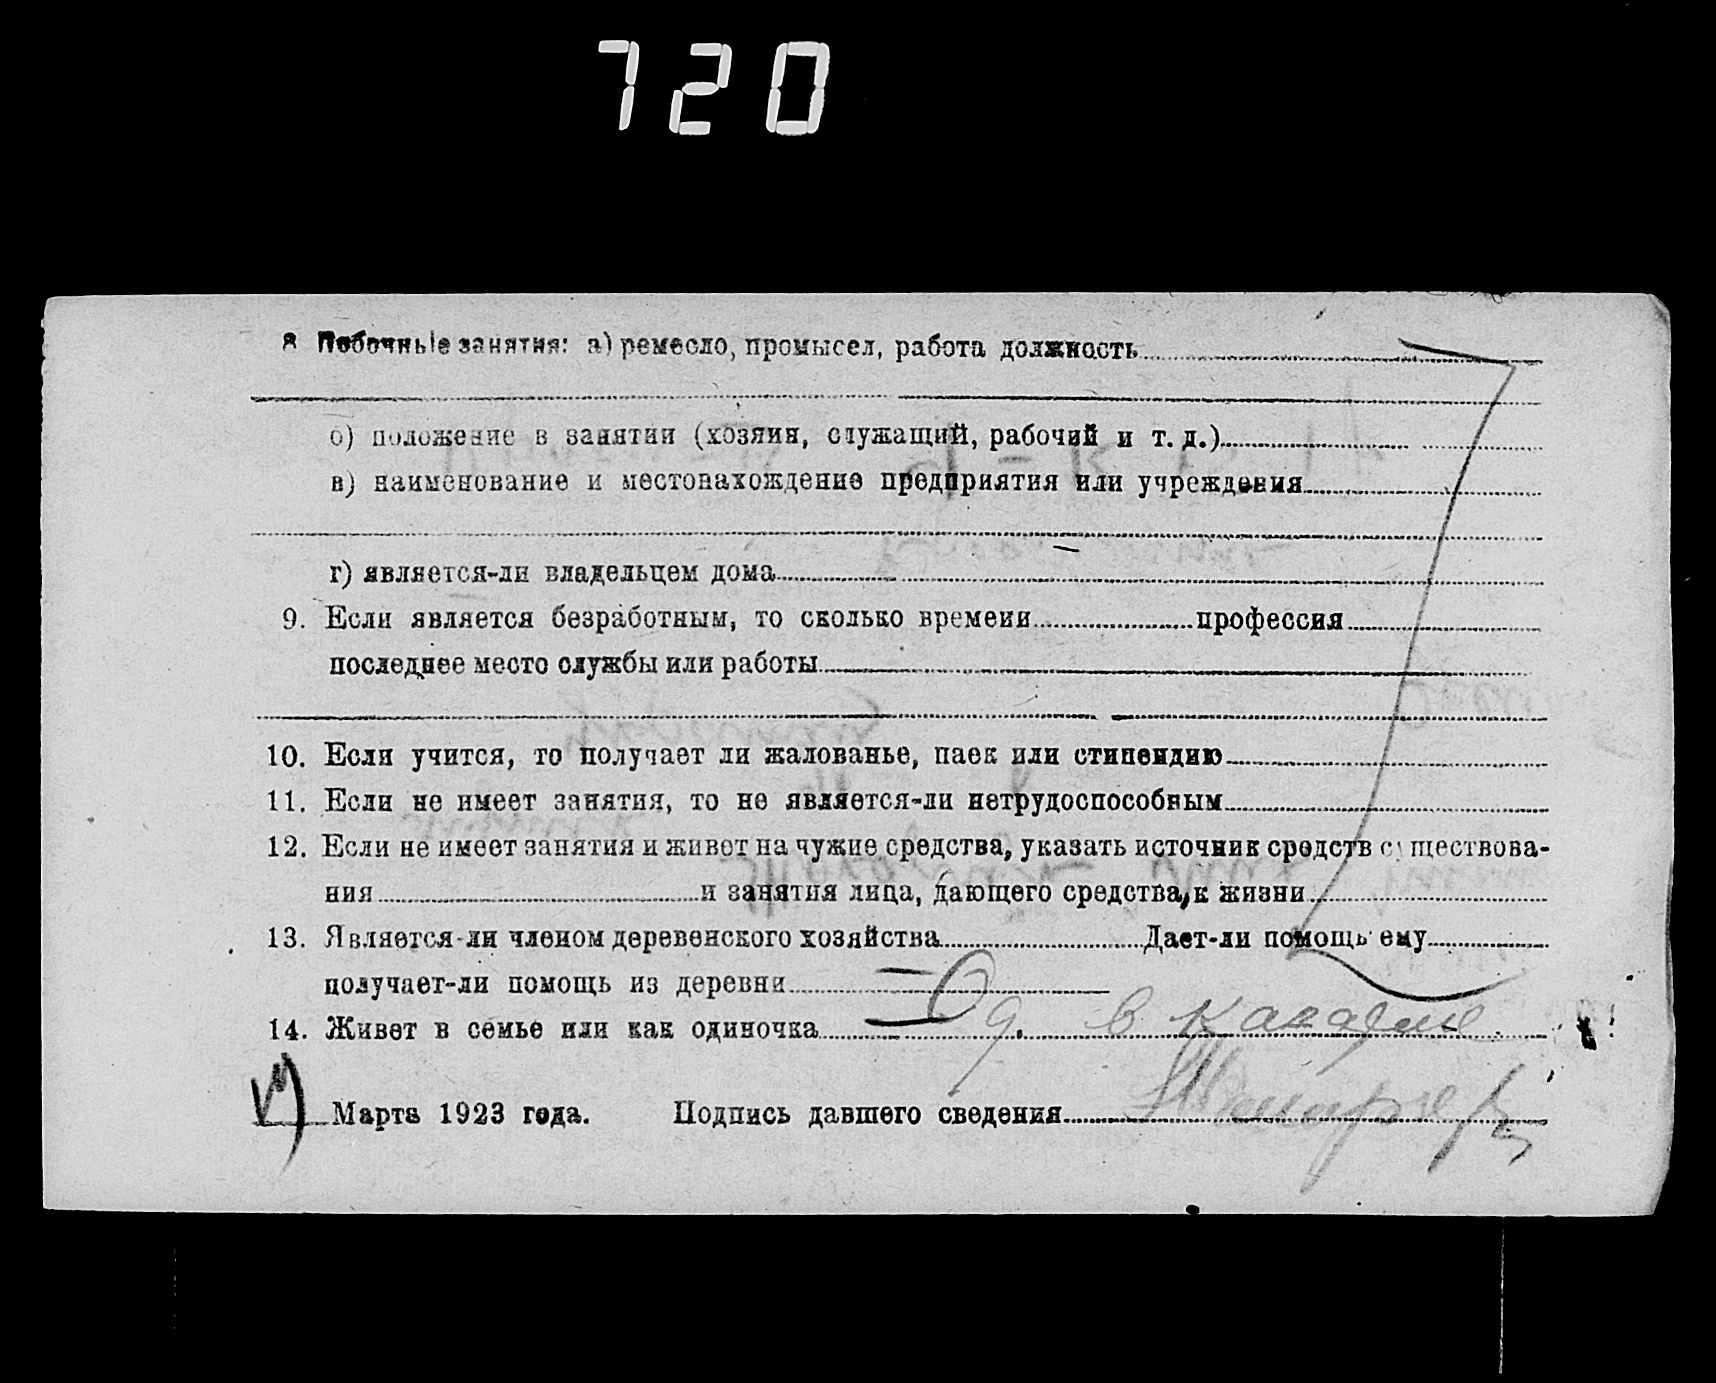 720
8 Побочные занятия: а) ремесло, промысел, работа должность
б) положение в занятии (хозяин, служащий, рабочий и т. д.)
в) наименование и местонахождение предприятия или учреждения
г) является-ли владельцем дома
9. Если является безработным, то сколько времени профессия
последнее место службы или работы
10. Если учится, то получает ли жалованье, паек или стипендию
11. Если не имеет занятия, то не является-ли нетрудоспособным
12. Если не имеет занятия и живет на чужие средства, указать источник средств существова-
ния и занятия лица, дающего средства к жизни
13. Является-ли членом деревенского хозяйства Дает-ли помощь ему
получает-ли помощь из деревни
14. Живет в семье или как одиночка Од. в
Марта 1923 года. Подпись давшего сведения